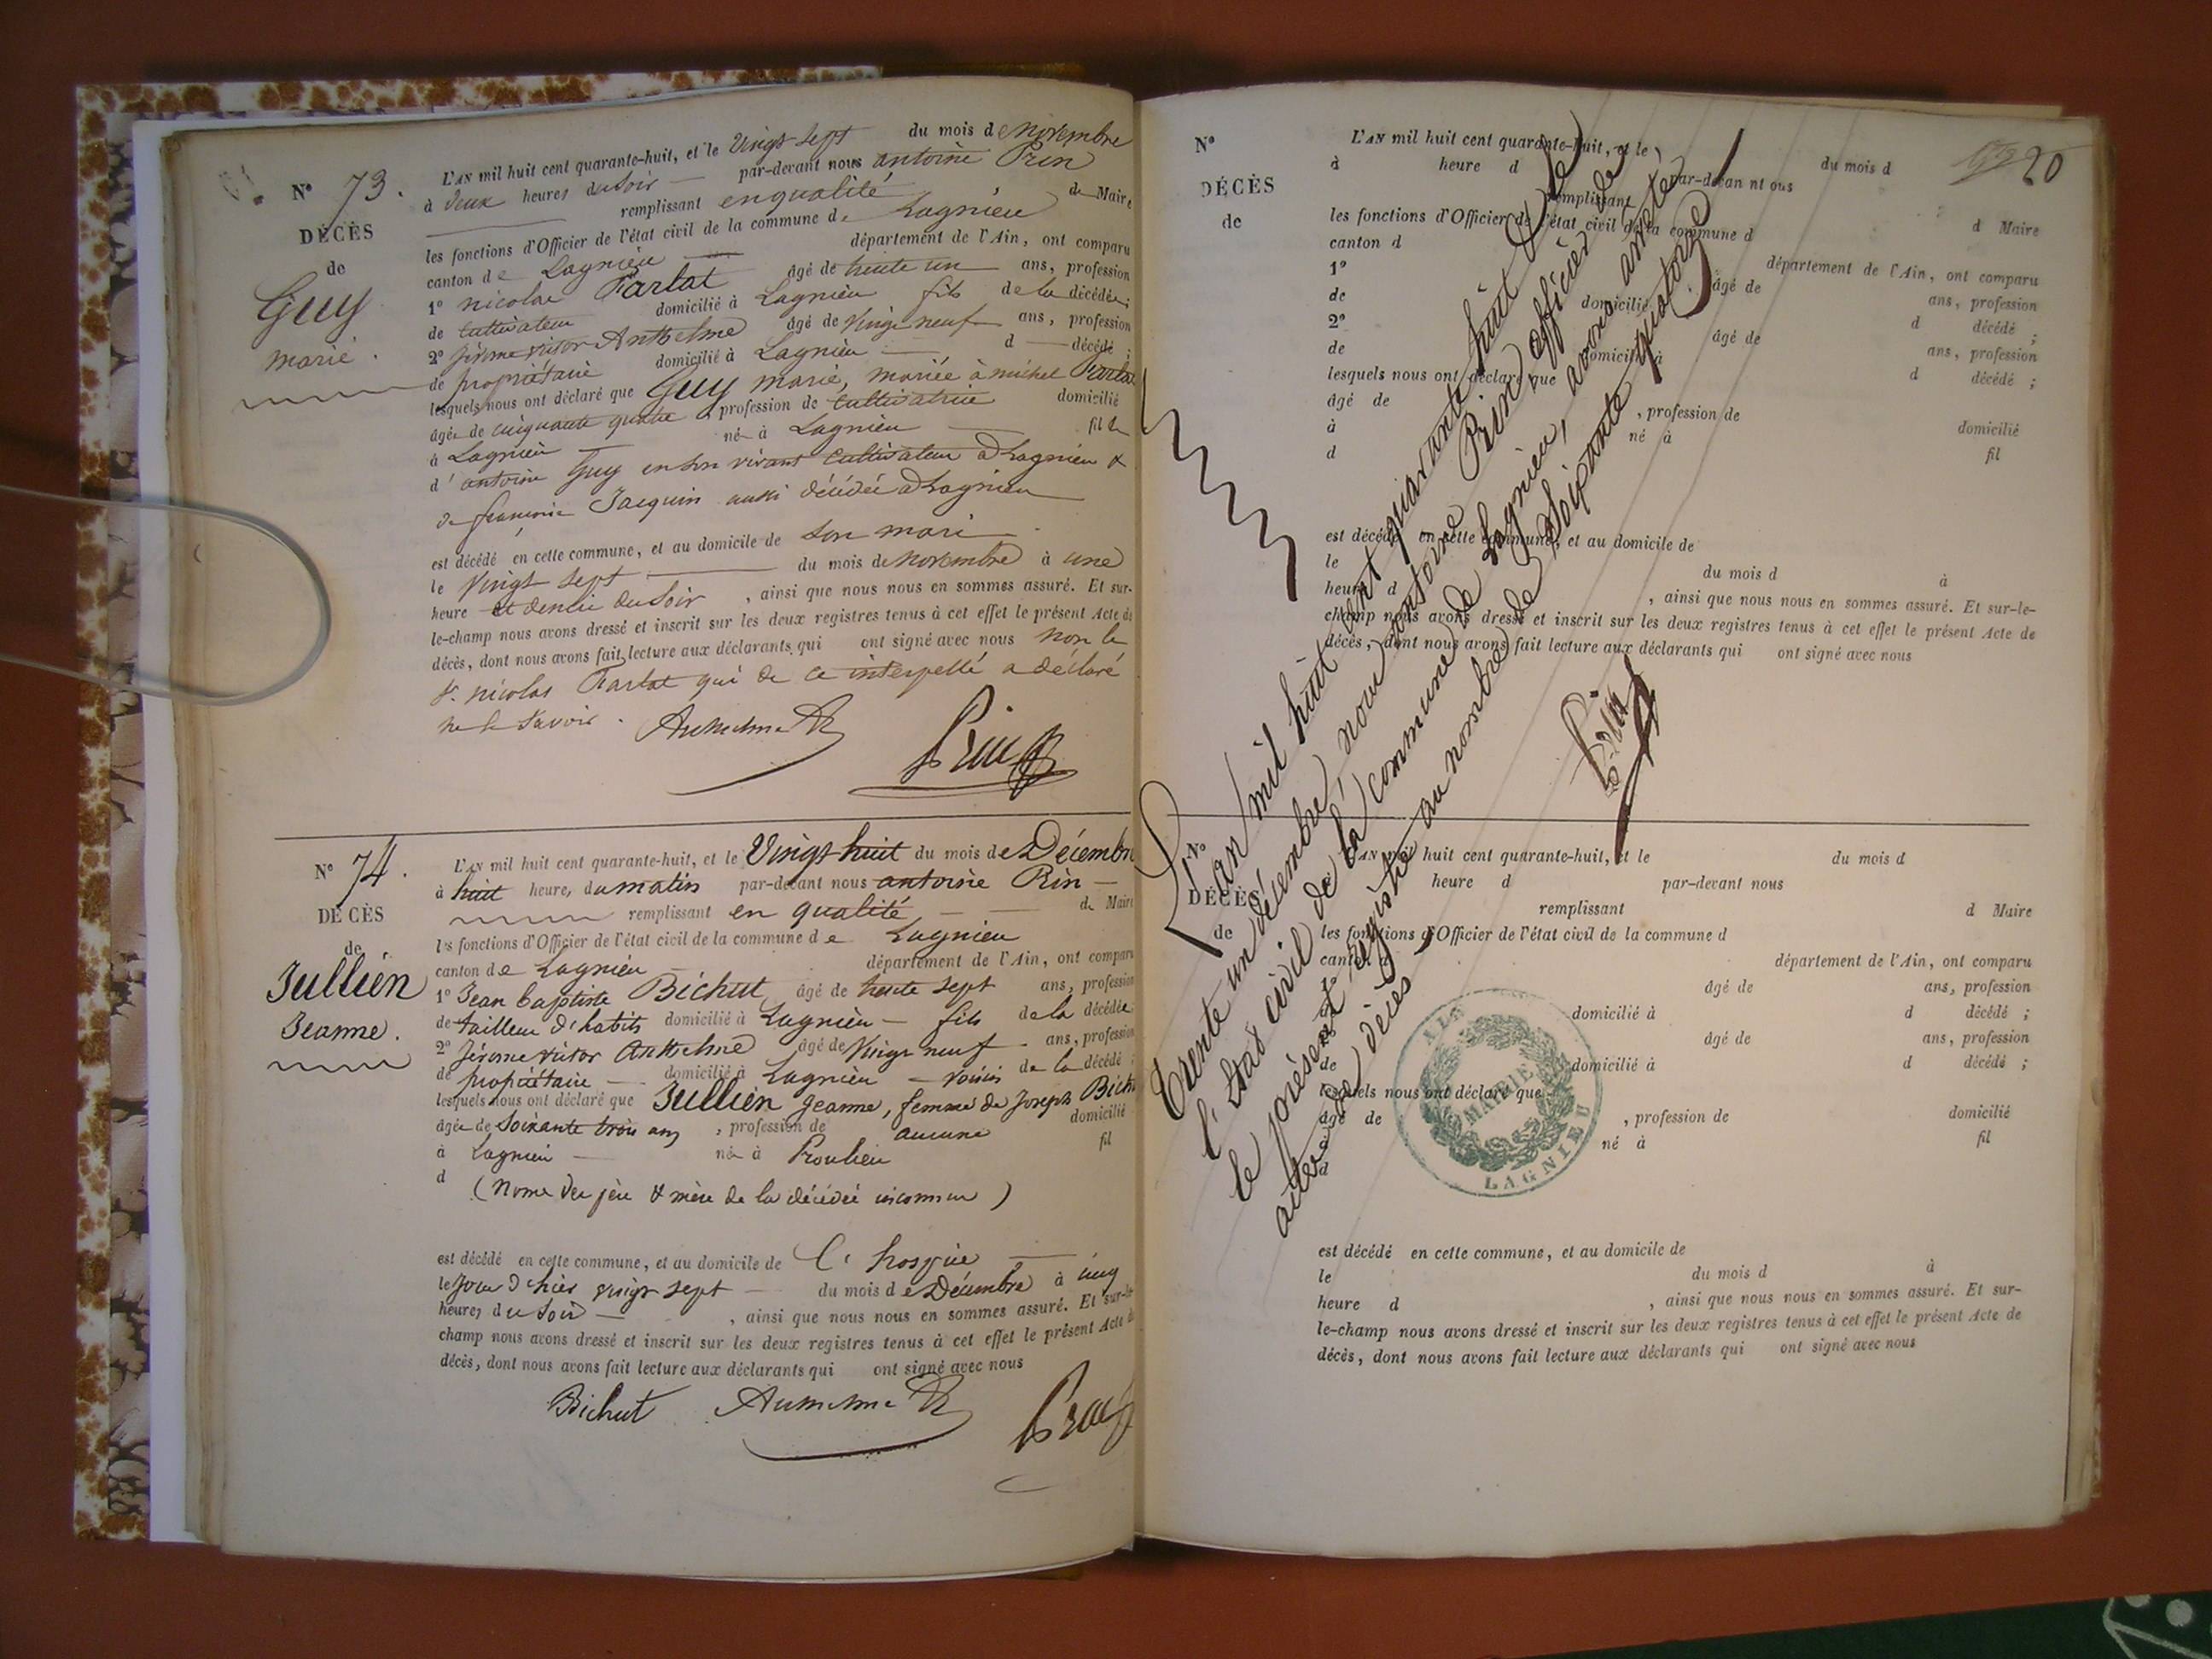 N° 73.
DÉCÈS
de
Guy
marie.
L'AN mil huit cent quarante-huit, et le vingt sept du mois de novembre
à deux heures du soir par-devant nous antoine Prin
remplissant en qualité de Maire
les fonctions d'Officier de l'état civil de la commune de Lagnieu
canton de Lagnieu département de l'Ain, ont comparu
1° nicolas Parlat âgé de trente un ans, profession
de cultivateur domicilié à Lagnieu fils de la décédée;
2° jérome victor Anthelme âgé de vingt neuf ans, profession
de propriétaire domicilié à Lagnieu d décédé;
lesquels nous ont déclaré que Guy marie, mariée à michel Parlat
âgée de cinquante quatre, profession de cultivatrice domicilié
à Lagnieu née à Lagnieu fille
d'antoine Guy en son vivant cultivateur à Lagnieu &
de Jacquin aussi décédée à Lagnieu
est décédé en cette commune, et au domicile de son mari
le vingt sept du mois de novembre à une
heure et demie du soir, ainsi que nous nous en sommes assuré. Et sur-
le-champ nous avons dressé et inscrit sur les deux registres tenus à cet effet le présent Acte de
décès, dont nous avons fait lecture aux déclarants qui ont signé avec nous non le
s. nicolas Parlat qui de ce interpellé a déclaré
ne le savoir.
Anthelme Prin
N° 74.
DÉCÈS
de
Jullien
Jeanne.
L'AN mil huit cent quarante-huit, et le vingt huit du mois de Décembre
à huit heures du matin par-devant nous antoine Prin
remplissant en qualité de Maire
les fonctions d'Officier de l'état civil de la commune de Lagnieu
canton de Lagnieu département de l'Ain, ont comparu
1° Jean baptiste Bichut âgé de trente sept ans, profession
de tailleur d'habits domicilié à Lagnieu fils de la décédée
2° jérome victor Anthelme âgé de vingt neuf ans, profession
de propriétaire domicilié à Lagnieu voisin de la décédé;
lesquels nous ont déclaré que Jullien jeanne, femme de Joseph Bichut
âgée de soixante trois ans, profession de aucune domicilié
à Lagnieu née à Proulieu fil
d (noms des père & mère de la décédée inconnus)
est décédé en cette commune, et au domicile de l'hospice
le jour d'hier vingt sept du mois de Décembre à cinq
heures du soir, ainsi que nous nous en sommes assuré. Et sur-le-
champ nous avons dressé et inscrit sur les deux registres tenus à cet effet le présent Acte de
décès, dont nous avons fait lecture aux déclarants qui ont signé avec nous
Bichut Anthelme Prin
20
N°
DÉCÈS
de
L'AN mil huit cent quarante-huit, et le du mois d
à heure d par-devan nt ous
remplissant d Maire
les fonctions d'Officier de l'état civil de la commune d
canton d département de l'Ain, ont comparu
1° âgé de ans, profession
de domicilié à d décédé;
2° âgé de ans, profession
de domicilié à d décédé;
lesquels nous ont déclaré que
âgé de , profession de domicilié
à né à fil
d
est décédé en cette commune, et au domicile de
le du mois d à
heure d , ainsi que nous nous en sommes assuré. Et sur-le-
champ nous avons dressé et inscrit sur les deux registres tenus à cet effet le présent Acte de
décès, dont nous avons fait lecture aux déclarants qui ont signé avec nous
L'an mil huit cent quarante huit & le
trente un décembre, nous antoine Prin officier de
l'état civil de la commune de Lagnieu, avons arrêté
le présent registre au nombre de soixante quatorze
actes de décès
Prin
N°
DÉCÈS
de
L'AN mil huit cent quarante-huit, et le du mois d
à heure d par-devant nous
remplissant d Maire
les fonctions d'Officier de l'état civil de la commune d
canton d département de l'Ain, ont comparu
1° âgé de ans, profession
de domicilié à d décédé;
2° âgé de ans, profession
de domicilié à d décédé;
lesquels nous ont déclaré que
âgé de , profession de domicilié
à né à fil
d
MAIRIE
LAGNIEU
est décédé en cette commune, et au domicile de
le du mois d à
heure d , ainsi que nous nous en sommes assuré. Et sur-
le-champ nous avons dressé et inscrit sur les deux registres tenus à cet effet le présent Acte de
décès, dont nous avons fait lecture aux déclarants qui ont signé avec nous